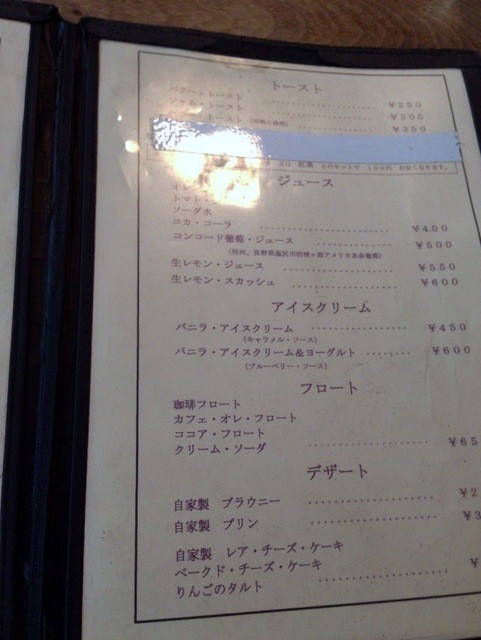 トースト
バター・トースト ¥250
ジャム・トースト ¥300
トースト ¥350
紅茶 とのセットで 100円 お安くなります。
ジュース
オレ
トマト・
ソーダ水
コカ・コーラ ¥400
コンコード葡萄・ジュース ¥500
(信州、長野県塩尻市桔梗ヶ原アメリカ系赤葡萄)
生レモン・ジュース ¥550
生レモン・スカッシュ ¥600
アイスクリーム
バニラ・アイスクリーム ¥450
(キャラメル・ソース)
バニラ・アイスクリーム&ヨーグルト ¥600
(ブルーベリー・ソース)
フロート
珈琲フロート
カフェ・オレ・フロート
ココア・フロート
クリーム・ソーダ ¥65
デザート
自家製 ブラウニー ¥2
自家製 プリン ¥3
自家製 レア・チーズ・ケーキ
ベークド・チーズ・ケーキ
りんごのタルト ¥